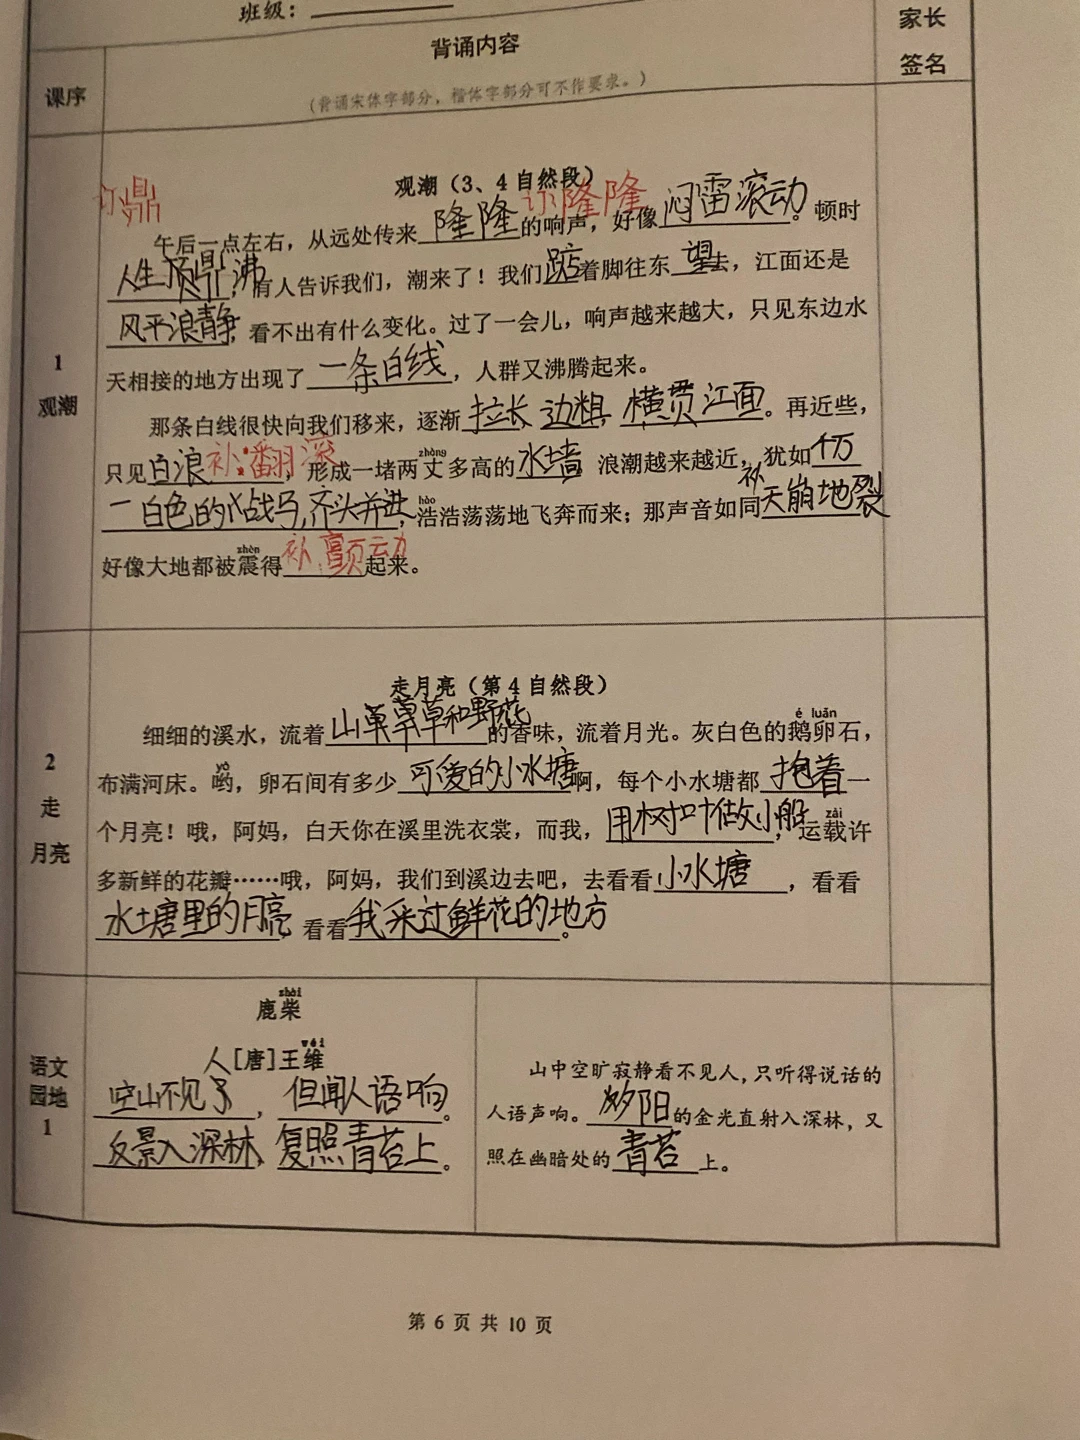 班级：
课序
背诵内容
（背诵宋体字部分，楷体字部分可不作要求。）
家长
签名
1
观潮
观潮（3、4自然段）
订鼎
订:隆隆
午后一点左右，从远处传来隆隆的响声，好像闷雷滚动。顿时
人生顶鼎沸，有人告诉我们，潮来了！我们踮着脚往东望去，江面还是
风平浪静，看不出有什么变化。过了一会儿，响声越来越大，只见东边水
天相接的地方出现了一条白线，人群又沸腾起来。
那条白线很快向我们移来，逐渐拉长 边粗，横贯江面。再近些，
zhàng
只见白浪补:翻滚，形成一堵两丈多高的水墙 浪潮越来越近，犹如千万
补
hào
一白色的战马,齐头并进，浩浩荡荡地飞奔而来；那声音如同天崩地裂
zhèn
好像大地都被震得补颤动起来。
2
走
月亮
走月亮（第4自然段）
é luǎn
细细的溪水，流着山草草和野花的香味，流着月光。灰白色的鹅卵石，
yō
布满河床。哟，卵石间有多少可爱的小水塘啊，每个小水塘都抱着一
zài
个月亮！哦，阿妈，白天你在溪里洗衣裳，而我，用树叶做小船，运载许
多新鲜的花瓣……哦，阿妈，我们到溪边去吧，去看看小水塘，看看
水塘里的月亮，看看我采过鲜花的地方。
语文
园地
1
zhài
鹿柴
wéi
人[唐]王维
空山不见，但闻人语响。
反景入深林，复照青苔上。
山中空旷寂静看不见人，只听得说话的
人语声响。阳的金光直射入深林，又
照在幽暗处的青苔上。
第 6 页 共 10 页